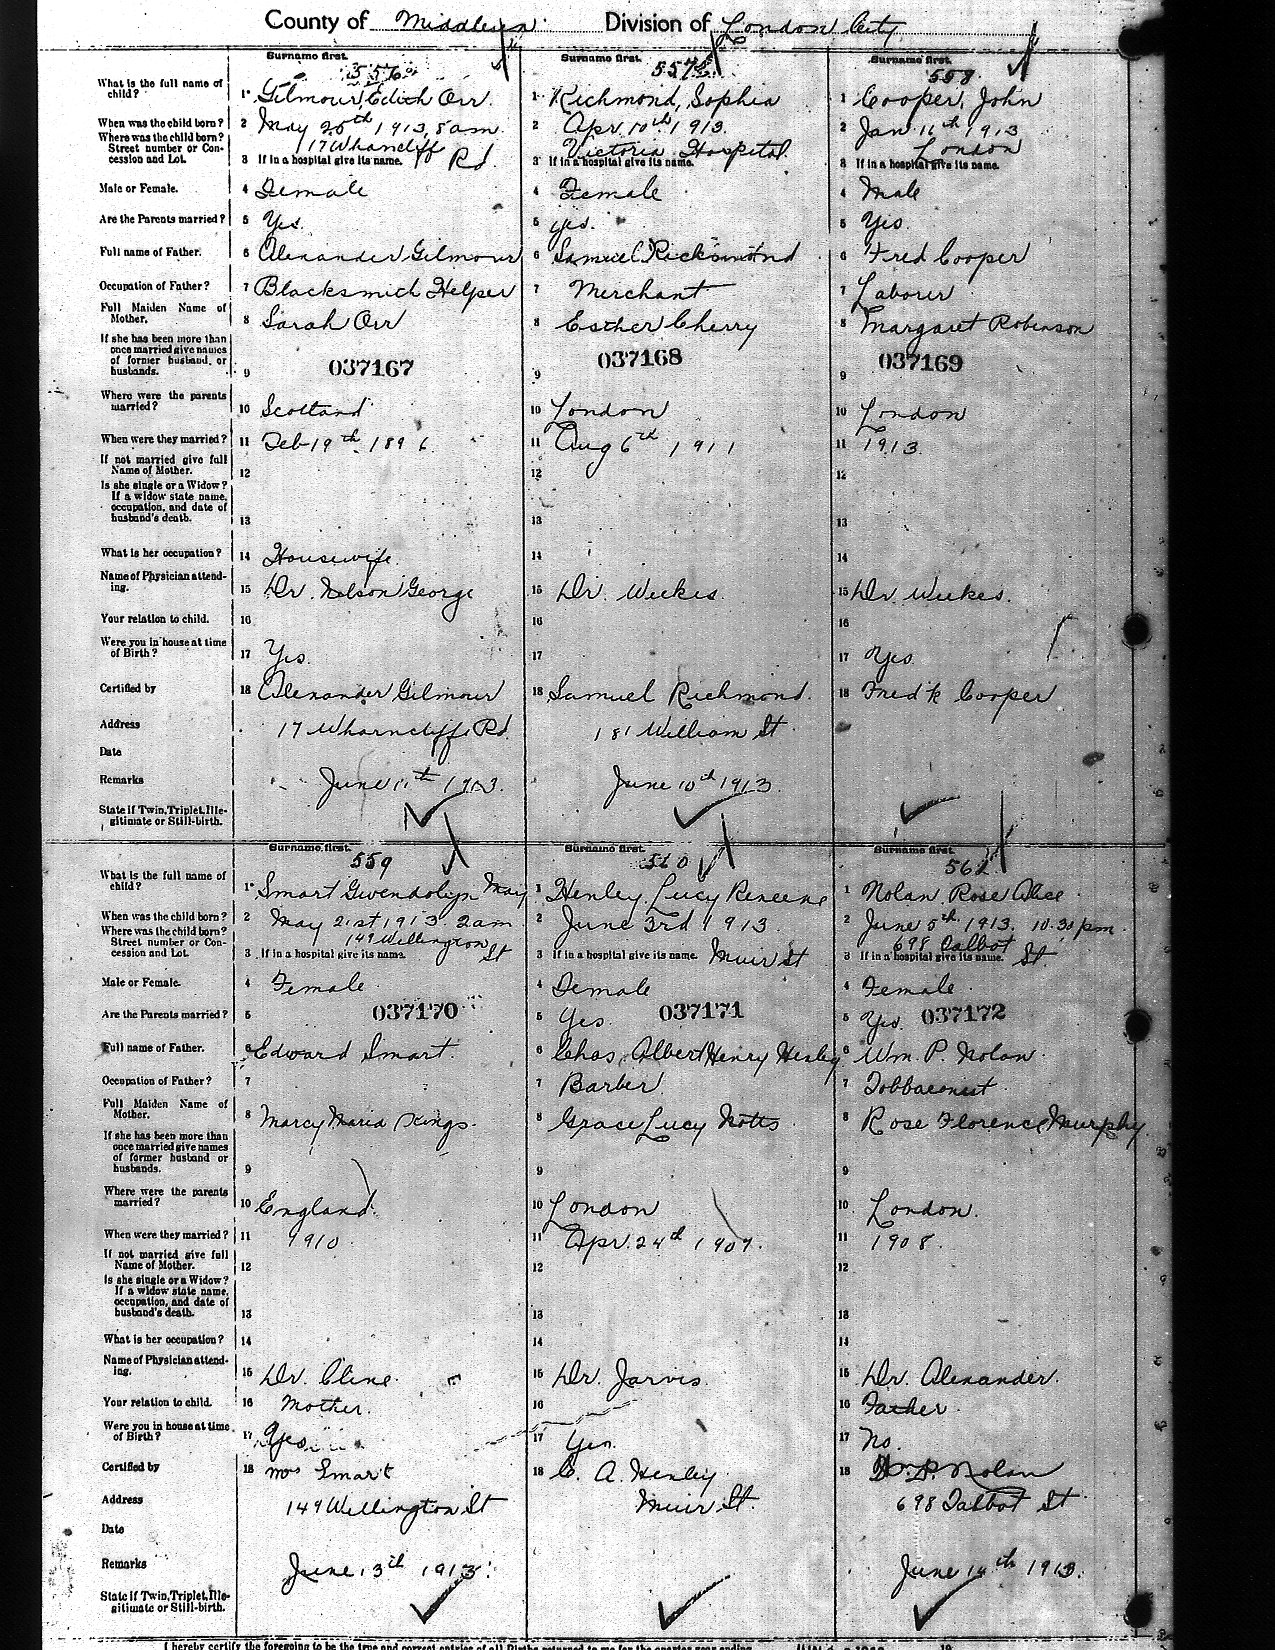 County of Middlesex Division of London City
Surname first. Surname first. Surname first.
556 557 558
What is the full name of child? 1 Gilmour, Edith Orr. 1 Richmond, Sophia 1 Cooper, John
When was the child born? 2 May 20th 1913, 5 am. 2 Apr. 10th 1913. 2 Jan 11th 1913
Where was the child born? Street number or Concession and Lot. 17 Whancliff Rd Victoria Hospital London
3 If in a hospital give its name. 3 If in a hospital give its name. 3 If in a hospital give its name.
Male or Female. 4 Female 4 Female 4 Male
Are the Parents married? 5 Yes. 5 yes. 5 Yes.
Full name of Father. 6 Alexander Gilmour 6 Samuel Richmond 6 Fred Cooper
Occupation of Father? 7 Blacksmith Helper 7 Merchant 7 Laborer
Full Maiden Name of Mother. 8 Sarah Orr 8 Esther Cherry 8 Margaret Robinson
If she has been more than once married give names of former husband, or husbands. 9 037167 9 037168 9 037169
Where were the parents married? 10 Scotland 10 London 10 London
When were they married? 11 Feb 19th 1896. 11 Aug 6th 1911 11 1913.
If not married give full Name of Mother. 12 12 12
Is she single or a Widow? If a widow state name, occupation, and date of husband's death. 13 13 13
What is her occupation? 14 Housewife. 14 14
Name of Physician attending. 15 Dr. Nelson George 15 Dr. Weekes. 15 Dr. Weekes.
Your relation to child. 16 16 16
Were you in house at time of Birth? 17 Yes. 17 17 Yes
Certified by 18 Alexander Gilmour 18 Samuel Richmond. 18 Fredk Cooper
Address 17 Wharncliffe Rd. 181 William St
Date
Remarks June 11th 1913. June 10th 1913
State if Twin, Triplet, Illegitimate or Still-birth.
Surname first. Surname first. Surname first.
559 560 562
What is the full name of child? 1 Smart Gwendolyn May 1 Henley, Lucy Reneene 1 Nolan Rose Alice
When was the child born? 2 May 21st 1913. 2 am 2 June 3rd 1913. 2 June 5th 1913. 10.30 pm.
Where was the child born? Street number or Concession and Lot. 149 Wellington St 698 Talbot St.
3 If in a hospital give its name. 3 If in a hospital give its name. Muir St 3 If in a hospital give its name.
Male or Female. 4 Female 4 Female 4 Female
Are the Parents married? 5 037170 5 Yes. 037171 5 Yes. 037172
Full name of Father. 6 Edward Smart. 6 Chas. Albert Henry Henley 6 Wm. P. Nolan.
Occupation of Father? 7 7 Barber 7 Tobbaconist
Full Maiden Name of Mother. 8 Marcy Maria Kings. 8 Grace Lucy Notts 8 Rose Florence Murphy
If she has been more than once married give names of former husband or husbands. 9 9 9
Where were the parents married? 10 England. 10 London 10 London.
When were they married? 11 1910 11 Apr. 24th 1907. 11 1908.
If not married give full Name of Mother. 12 12
Is she single or a Widow? If a widow state name, occupation, and date of husband's death. 13 13 13
What is her occupation? 14 14 14
Name of Physician attending. 15 Dr. Cline 15 Dr. Jarvis. 15 Dr. Alexander.
Your relation to child. 16 Mother. 16 16 Father.
Were you in house at time of Birth? 17 Yes 17 Yes. 17 No.
Certified by 18 Mrs Smart 18 C. A. Henley 18 W. P. Nolan
Address 149 Wellington St Muir St. 698 Talbot St
Date
Remarks June 13th 1913. June 14th 1913.
State if Twin, Triplet, Illegitimate or Still-birth.
I hereby certify the foregoing to be the true and correct entries of all Births returned to me for the quarter year ending